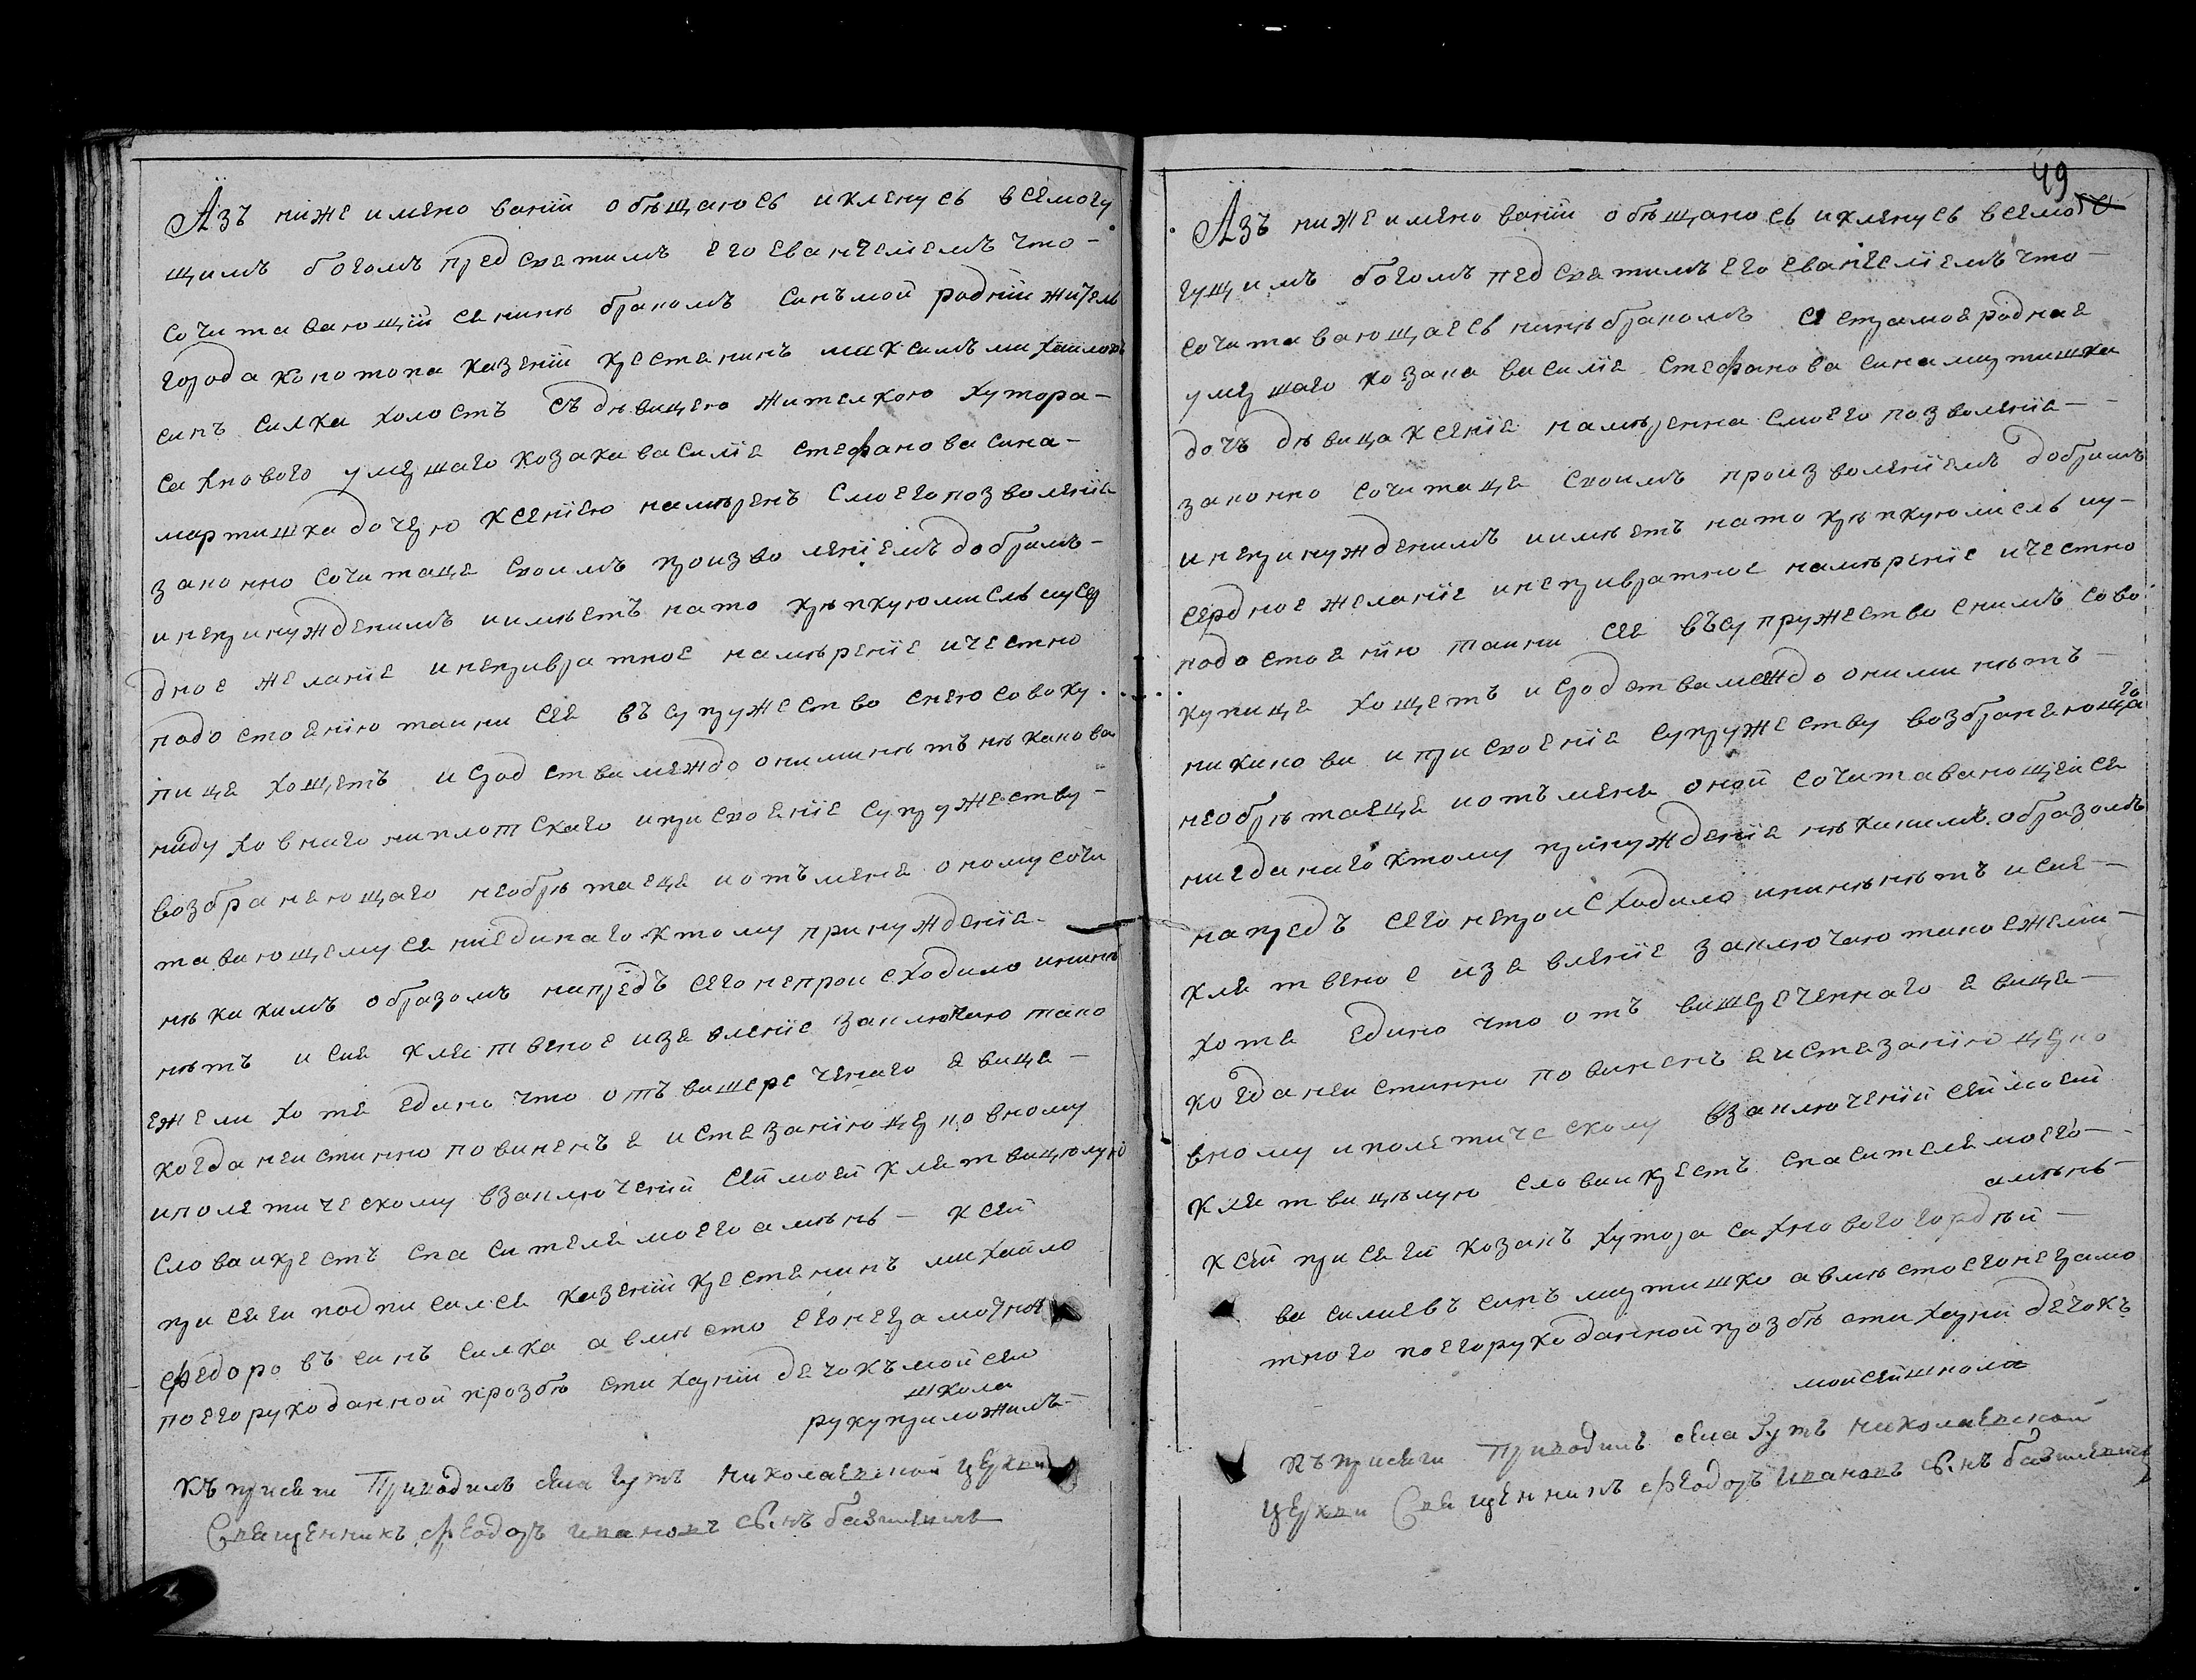 Азъ ниже имяно ваній обѣщаюсь иклянусь всемогу
щимъ богомъ пред святимъ его евангелиемъ что-
сочитавающій ся нинѣ бракомъ синъ мой родній житель
города конотопа казеній крестянинъ максимъ михайловъ
синъ силка холостъ съ дѣвицею жителкою хутора-
сахнового умершаго козака василія стефанова сина-
мартишка дочерю ксеніею намѣренъ смоего позволенія
законно сочитаця своимъ произволеніемъ добримъ-
инепринужденимъ иимѣетъ нато крѣпкуюмисль иусер
дное желаніе инепривратное намѣреніе ичестно
подостоянію таини сея въ супружество снею совоку
пиця хощетъ исродствамеждо ониминѣтъ нѣкакова
нидуховнаго ниплотскаго иприсвоеніе супружеству-
возбраняющаго необрѣтаеця иотъ меня оному сочи
тавающемуся ниединаго ктому принужденія-
нѣкакимъ образомъ напредъ сего непроисходило ининѣ
нѣтъ исия клятвеное изявленіе заключаю тако
ежели хотя едино что отъ вишереченаго явиця-
когда неистинно повиненъ я истязанію церковному
иполятическому взаключеній сеймоей клятвицюлую
слова икрестъ спасителя моего аминь- ксей
присяги подписался казеній крестянинъ михайло
федоровъ синъ силка авмѣсто его неграмотного
поегорукоданной прозбѣ стихарній дячокъ мойсей
школа
руку приложилъ-
Къ присяги Приводилъ села Гутъ николаевской церкви
Священникъ Феодоръ Ивановъ с.нъ базилевичъ
49
Азъ ниже имяно ваній обѣщаюсь иклянусь всемо
гущимъ богомъ пед святимъ его евангелиемъ что-
сочитавающаесь нинѣ бракомъ сестрамоя родная
умершаго козака василія стефанова сина мартишка
дочъ дѣвица ксенія намѣренна смоего позволенія-
законно сочитаця своимъ произволеніемъ добримъ
инепринужденимъ иимѣетъ нато крѣпкуюмисль иу-
сердное желаніе инепривратное намѣреніе ичестно
подостоянію таини сея въсупружество снимъ сово
купиця хощетъ исродствамеждо оними нѣтъ-
никакова иприсвоенія супружеству возбраняюща
го
необрѣтаеця иотъ меня оной сочитавающейся
ниединаго ктому принужденія нѣкакимъ образомъ
напредъ сего непроисходило ининѣнѣтъ исия-
клятвеное изявленіе заключаютакоежели-
хотя едино что отъ вишереченнаго явиця-
когданеистинно повиненъ яистязанію церко
вному иполятическому взаключеній сеймоей
клятвицѣлую слова икрестъ спасителя моего-
аминь-
ксей присяги козакъ хутора сахнового гордѣй-
василиевъ синъ мартишко авмѣстоегонеграмо
тного поегорукоданной прозбѣ стихарни дячокъ
мойсей школа
Къ присяги Приводилъ села Гутъ николаевской
церкви Священникъ Феодоръ Ивановъ с.нъ базилевичъ